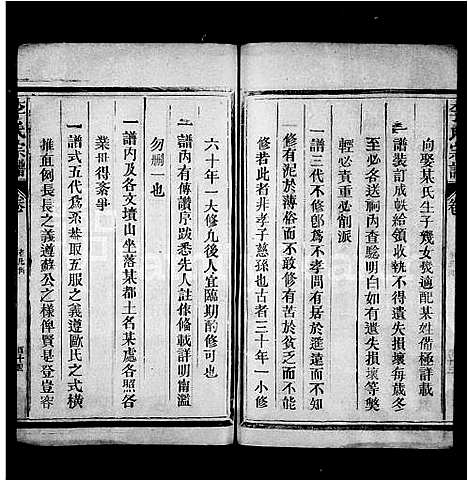 向娶某氏生子幾女熒適配某姓備極詳載
一譜裝訂成帙給領收執不得遺失損壞每歲冬
至必各送祠內查驗明白如有遺失損壞等獘
輕必責重必削派
一譜三代不修卽為不孝間有居於遥遠而不知
修有泥於薄俗而不敢修有苦於貧乏而不能
修若此者非孝子慈孫也古者三十年一小修
六十年一大修凢後人宜臨期酌修可也
一譜內有傳讚序跋悉先人註作條載詳明南濫
勿刪一也
一譜內及各文墳山坐落某都土名某處各照各
業世得紊爭
一譜式五代為系葢取五服之義遵歐氏之式橫
推直例長長之義遵蘇公之樣俾賢是登豈容
李氏宗譜
卷